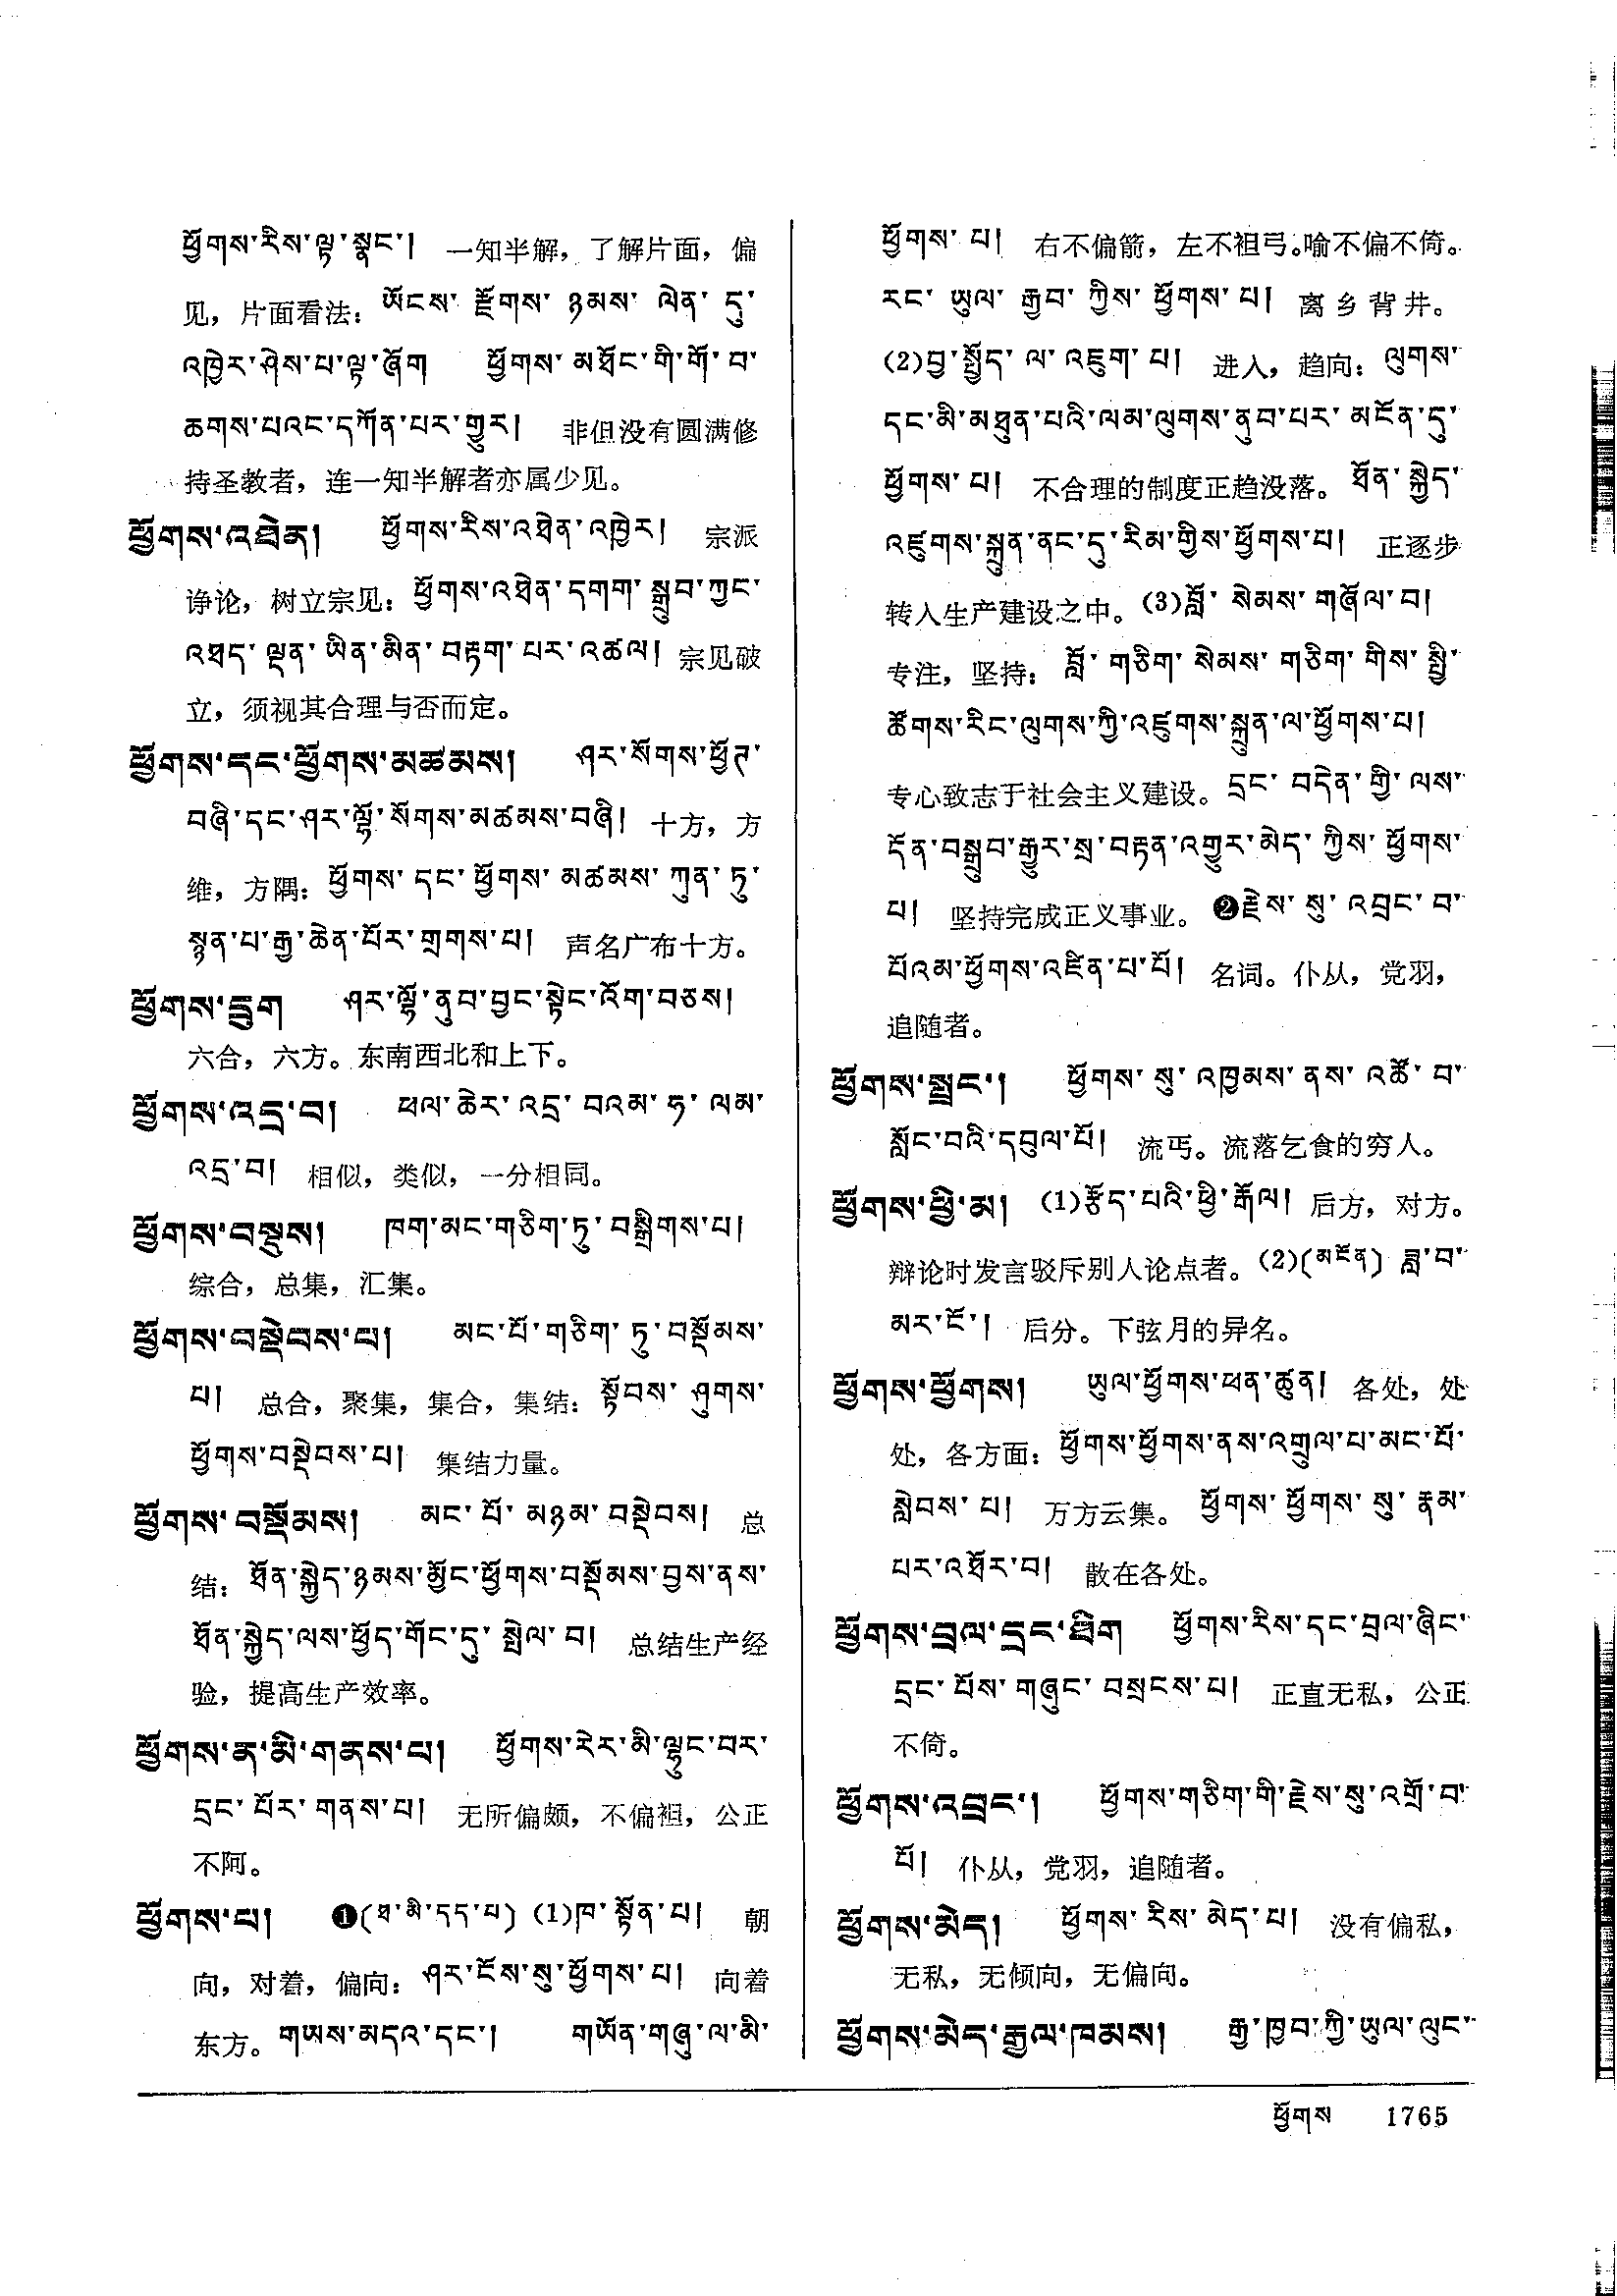 ཕྱོགས་རིས་ལྟ་སྣང་། 一知半解，了解片面，偏
见，片面看法：ཡོངས་རྫོགས་ཉམས་ལེན་དུ་
འཁྱེར་ཤེས་པ་ལྟ་ཞོག ཕྱོགས་མཐོང་གི་གོ་བ་
ཆགས་པའང་དཀོན་པར་གྱུར། 非但没有圆满修
持圣教者，连一知半解者亦属少见。
ཕྱོགས་འཐེན། ཕྱོགས་རིས་འཐེན་འཁྱེར། 宗派
诤论，树立宗见：ཕྱོགས་འཐེན་དགག་སྒྲུབ་ཀྱང་
འཐད་ལྡན་ཡིན་མིན་བརྟག་པར་འཚལ། 宗见破
立，须视其合理与否而定。
ཕྱོགས་དང་ཕྱོགས་མཚམས། ཤར་སོགས་ཕྱོཊ་
བཞི་དང་ཤར་ལྷོ་སོགས་མཚམས་བཞི། 十方，方
维，方隅：ཕྱོགས་དང་ཕྱོགས་མཚམས་ཀུན་ཏུ་
སྙན་པ་རྒྱ་ཆེན་པོར་གྲགས་པ། 声名广布十方。
ཕྱོགས་དྲུག ཤར་ལྷོ་ནུབ་བྱང་སྟེང་འོག་བཅས།
六合，六方。东南西北和上下。
ཕྱོགས་འདྲ་བ། ཕལ་ཆེར་འདྲ་བའམ་ཧ་ལམ་
འདྲ་བ། 相似，类似，一分相同。
ཕྱོགས་བསྡུས། ཁག་མང་གཅིག་ཏུ་བསྒྲིགས་པ།
综合，总集，汇集。
ཕྱོགས་བསྡེབས་པ། མང་པོ་གཅིག་ཏུ་བསྡོམས་
པ། 总合，聚集，集合，集结：སྟོབས་ཤུགས་
ཕྱོགས་བསྡེབས་པ། 集结力量。
ཕྱོགས་བསྡོམས། མང་པོ་མཉམ་བསྡེབས། 总
结：ཐོན་སྐྱེད་ཉམས་མྱོང་ཕྱོགས་བསྡོམས་བྱས་ནས་
ཐོན་སྐྱེད་ལས་ཕྱོད་གོང་དུ་སྤེལ་བ། 总结生产经
验，提高生产效率。
ཕྱོགས་ན་མི་གནས་པ། ཕྱོགས་རེར་མི་ལྷུང་བར་
དྲང་པོར་གནས་པ། 无所偏颇，不偏袒，公正
不阿。
ཕྱོགས་པ། ❶(ཐ་མི་དད་པ) (1)ཁ་སྟོན་པ། 朝
向，对着，偏向：ཤར་ངོས་སུ་ཕྱོགས་པ། 向着
东方。གཡས་མདའ་དང་། གཡོན་གཞུ་ལ་མི་
ཕྱོགས་པ། 右不偏箭，左不袒弓。喻不偏不倚。
རང་ཡུལ་རྒྱབ་ཀྱིས་ཕྱོགས་པ། 离乡背井。
(2)བྱ་སྤྱོད་ལ་འཇུག་པ། 进入，趋向：ལུགས་
དང་མི་མཐུན་པའི་ལམ་ལུགས་ནུབ་པར་མངོན་དུ་
ཕྱོགས་པ། 不合理的制度正趋没落。ཐོན་སྐྱེད་
འཛུགས་སྐྲུན་ནང་དུ་རིམ་གྱིས་ཕྱོགས་པ། 正逐步
转入生产建设之中。(3)བློ་སེམས་གཞོལ་བ།
专注，坚持：བློ་གཅིག་སེམས་གཅིག་གིས་སྤྱི་
ཚོགས་རིང་ལུགས་ཀྱི་འཛུགས་སྐྲུན་ལ་ཕྱོགས་པ།
专心致志于社会主义建设。དྲང་བདེན་གྱི་ལས་
དོན་བསྒྲུབ་རྒྱུར་སྲ་བརྟན་འགྱུར་མེད་ཀྱིས་ཕྱོགས་
པ། 坚持完成正义事业。❷རྗེས་སུ་འབྲང་བ་
པོའམ་ཕྱོགས་འཛིན་པ་པོ། 名词。仆从，党羽，
追随者。
ཕྱོགས་སྤྲང་། ཕྱོགས་སུ་འཁྱམས་ནས་འཚོ་བ་
སློང་བའི་དབུལ་པོ། 流丐。流落乞食的穷人。
ཕྱོགས་ཕྱི་མ། (1)རྩོད་པའི་ཕྱི་རྒོལ། 后方，对方。
辩论时发言驳斥别人论点者。(2)(མངོན) ཟླ་བ་
མར་ངོ་། 后分。下弦月的异名。
ཕྱོགས་ཕྱོགས། ཡུལ་ཕྱོགས་ཕན་ཚུན། 各处，处
处，各方面：ཕྱོགས་ཕྱོགས་ནས་འགྲུལ་པ་མང་པོ་
སླེབས་པ། 万方云集。ཕྱོགས་ཕྱོགས་སུ་རྣམ་
པར་འཐོར་བ། 散在各处。
ཕྱོགས་བྲལ་དྲང་ཐིག ཕྱོགས་རིས་དང་བྲལ་ཞིང་
དྲང་པོས་གཞུང་བསྲངས་པ། 正直无私，公正
不倚。
ཕྱོགས་འབྲང་། ཕྱོགས་གཅིག་གི་རྗེས་སུ་འགྲོ་བ་
པོ། 仆从，党羽，追随者。
ཕྱོགས་མེད། ཕྱོགས་རིས་མེད་པ། 没有偏私，
无私，无倾向，无偏向。
ཕྱོགས་མེད་རྒྱལ་ཁམས། རྒྱ་ཁྱབ་ཀྱི་ཡུལ་ལུང་
ཕྱོགས 1765